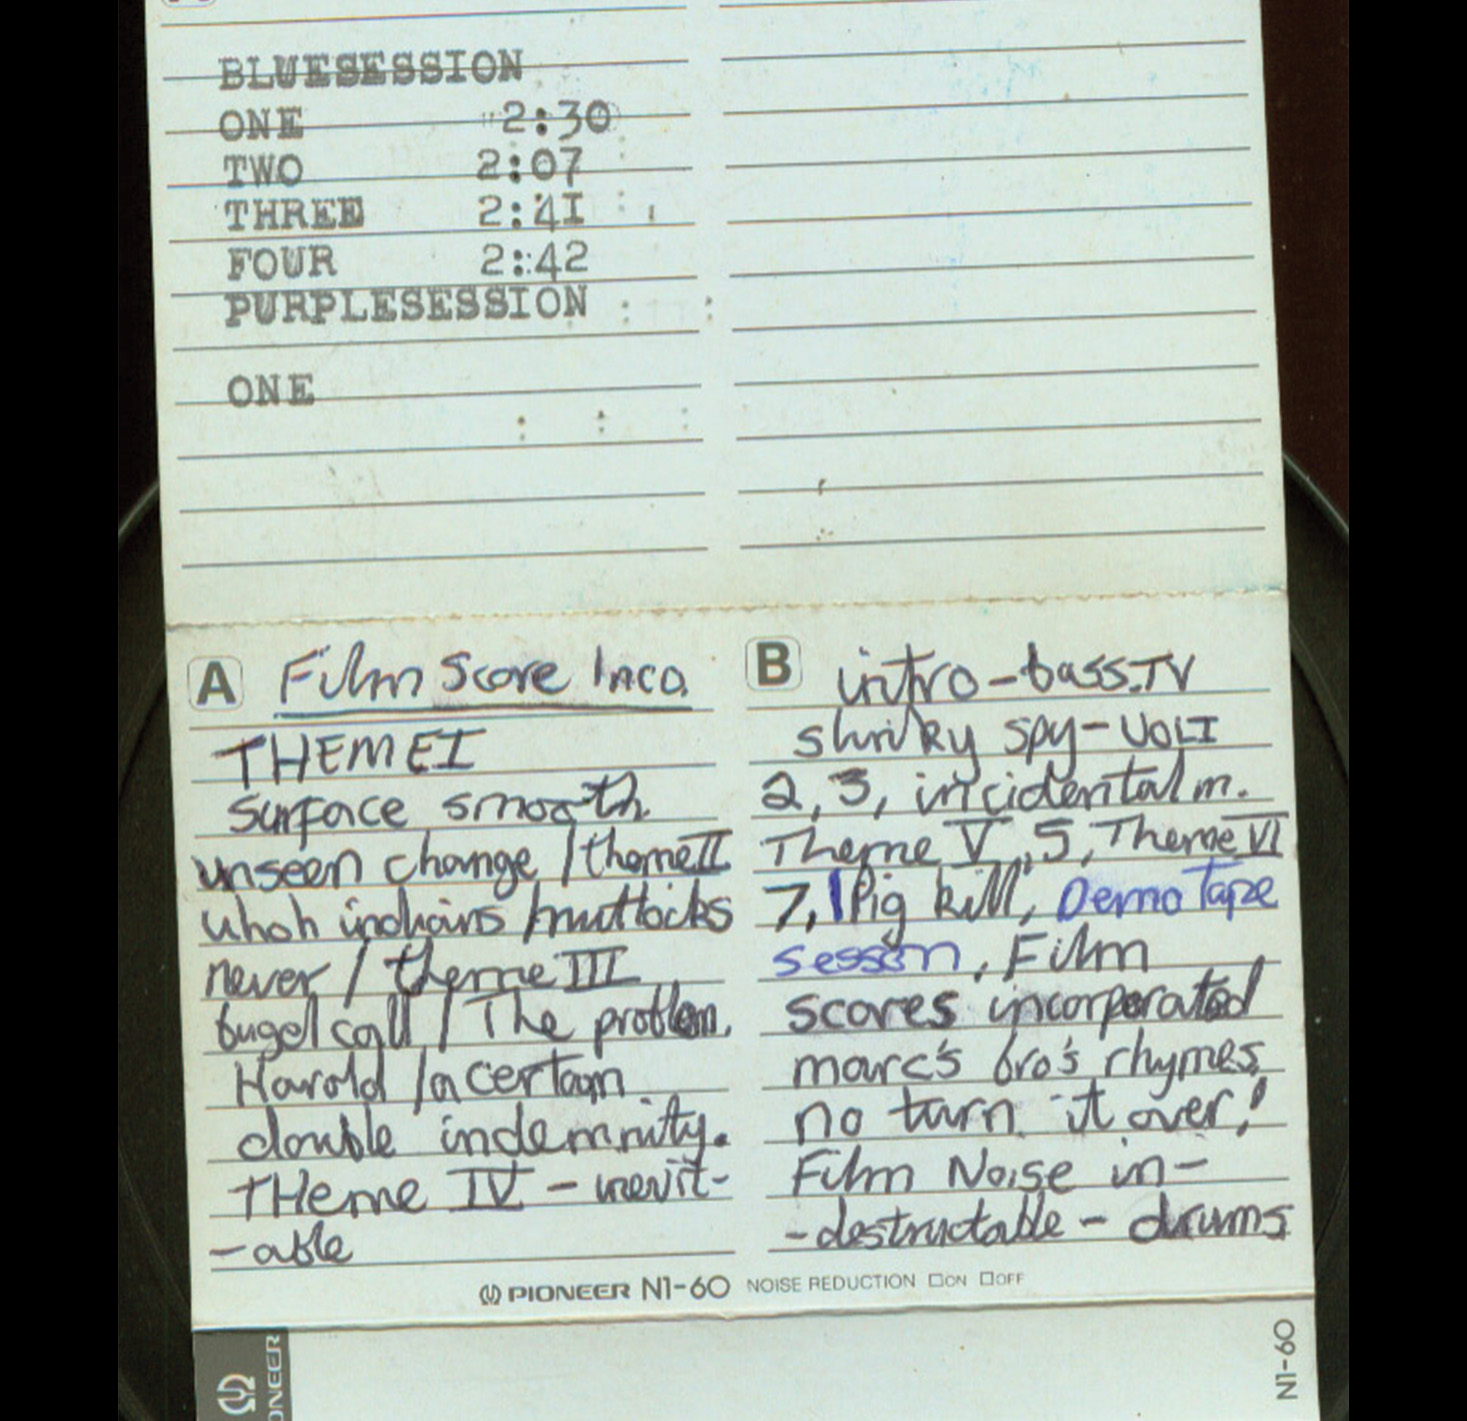 BLUESESSION
ONE 2:30
TWO 2:07
THREE 2:4I
FOUR 2:42
PURPLESESSION
ONE
A Film Score Inco.
THEME I
surface smooth
unseen change / theme II
whoh indians / muttocks
never / theme III
bugel call / The problem.
Harold / a certain
double indemnity.
THeme IV - inevit-
- able
B intro - bass. TV
shriky spy - VOL I
2, 3, incidental m.
Theme V, 5, Theme VI
7, Pig kill, Demo Tape
session, Film
scores incorporated
marc's bro's rhymes,
no turn it over!
Film Noise in-
- destructable - drums
PIONEER N1-60 NOISE REDUCTION ON OFF
N1-60